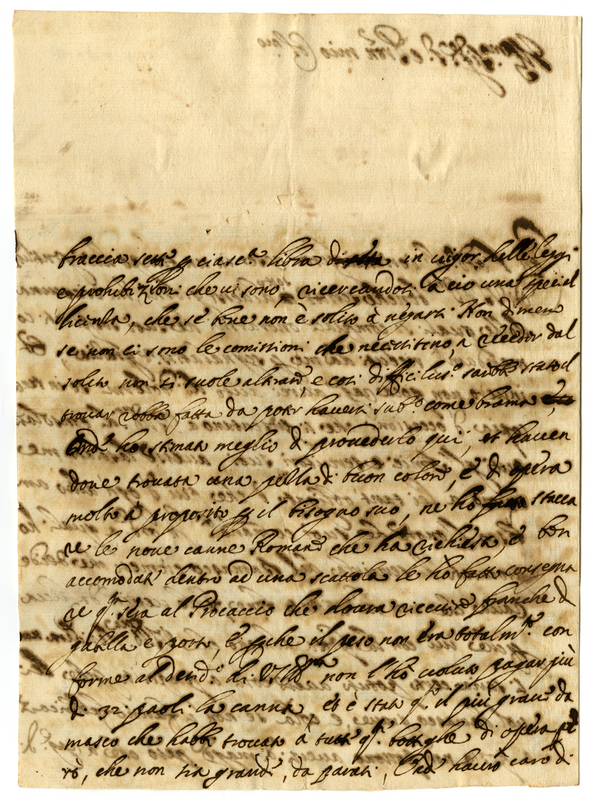 braccia sett.e p ciasc.a libra in vigor delle leggi
e prohibizioni che vi sono, ricercandosi a ciò una special
licenza, che se bene non è solito à negarsi Non dimen
se non ci sono le comissioni che necessitino à recedere dal
solito non si suole alterare, e così difficilm.e sarebbe stato il
trovar robba fatta da poter haversi sub.o come brama
Onde ho stimato meglio di provederlo qui, et haven
done trovata una pezza di buon colore, e di opera
molto à proposito p il bisogno suo, ne ho stacca
te le nove canne Romane che ha richiesto, e ben
accomodate dentro ad una scattola le ho fatte consegna
re q.ta sera al Procaccio che dovera riceverle franche di
gabella e porto, E perche il peso non era totalm.te con
forme al di V.S. Ill.ma non l'hò voluto pagar più
di 32 paoli la canna et è stato q.to il più grave da
masco che habbi trovato à tutte q.te botteghe di opera pe
rò, che non sia grande, da parati, Onde haverò caro di